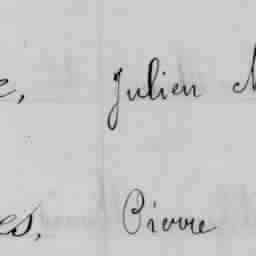 e, Julien
es, Pierre